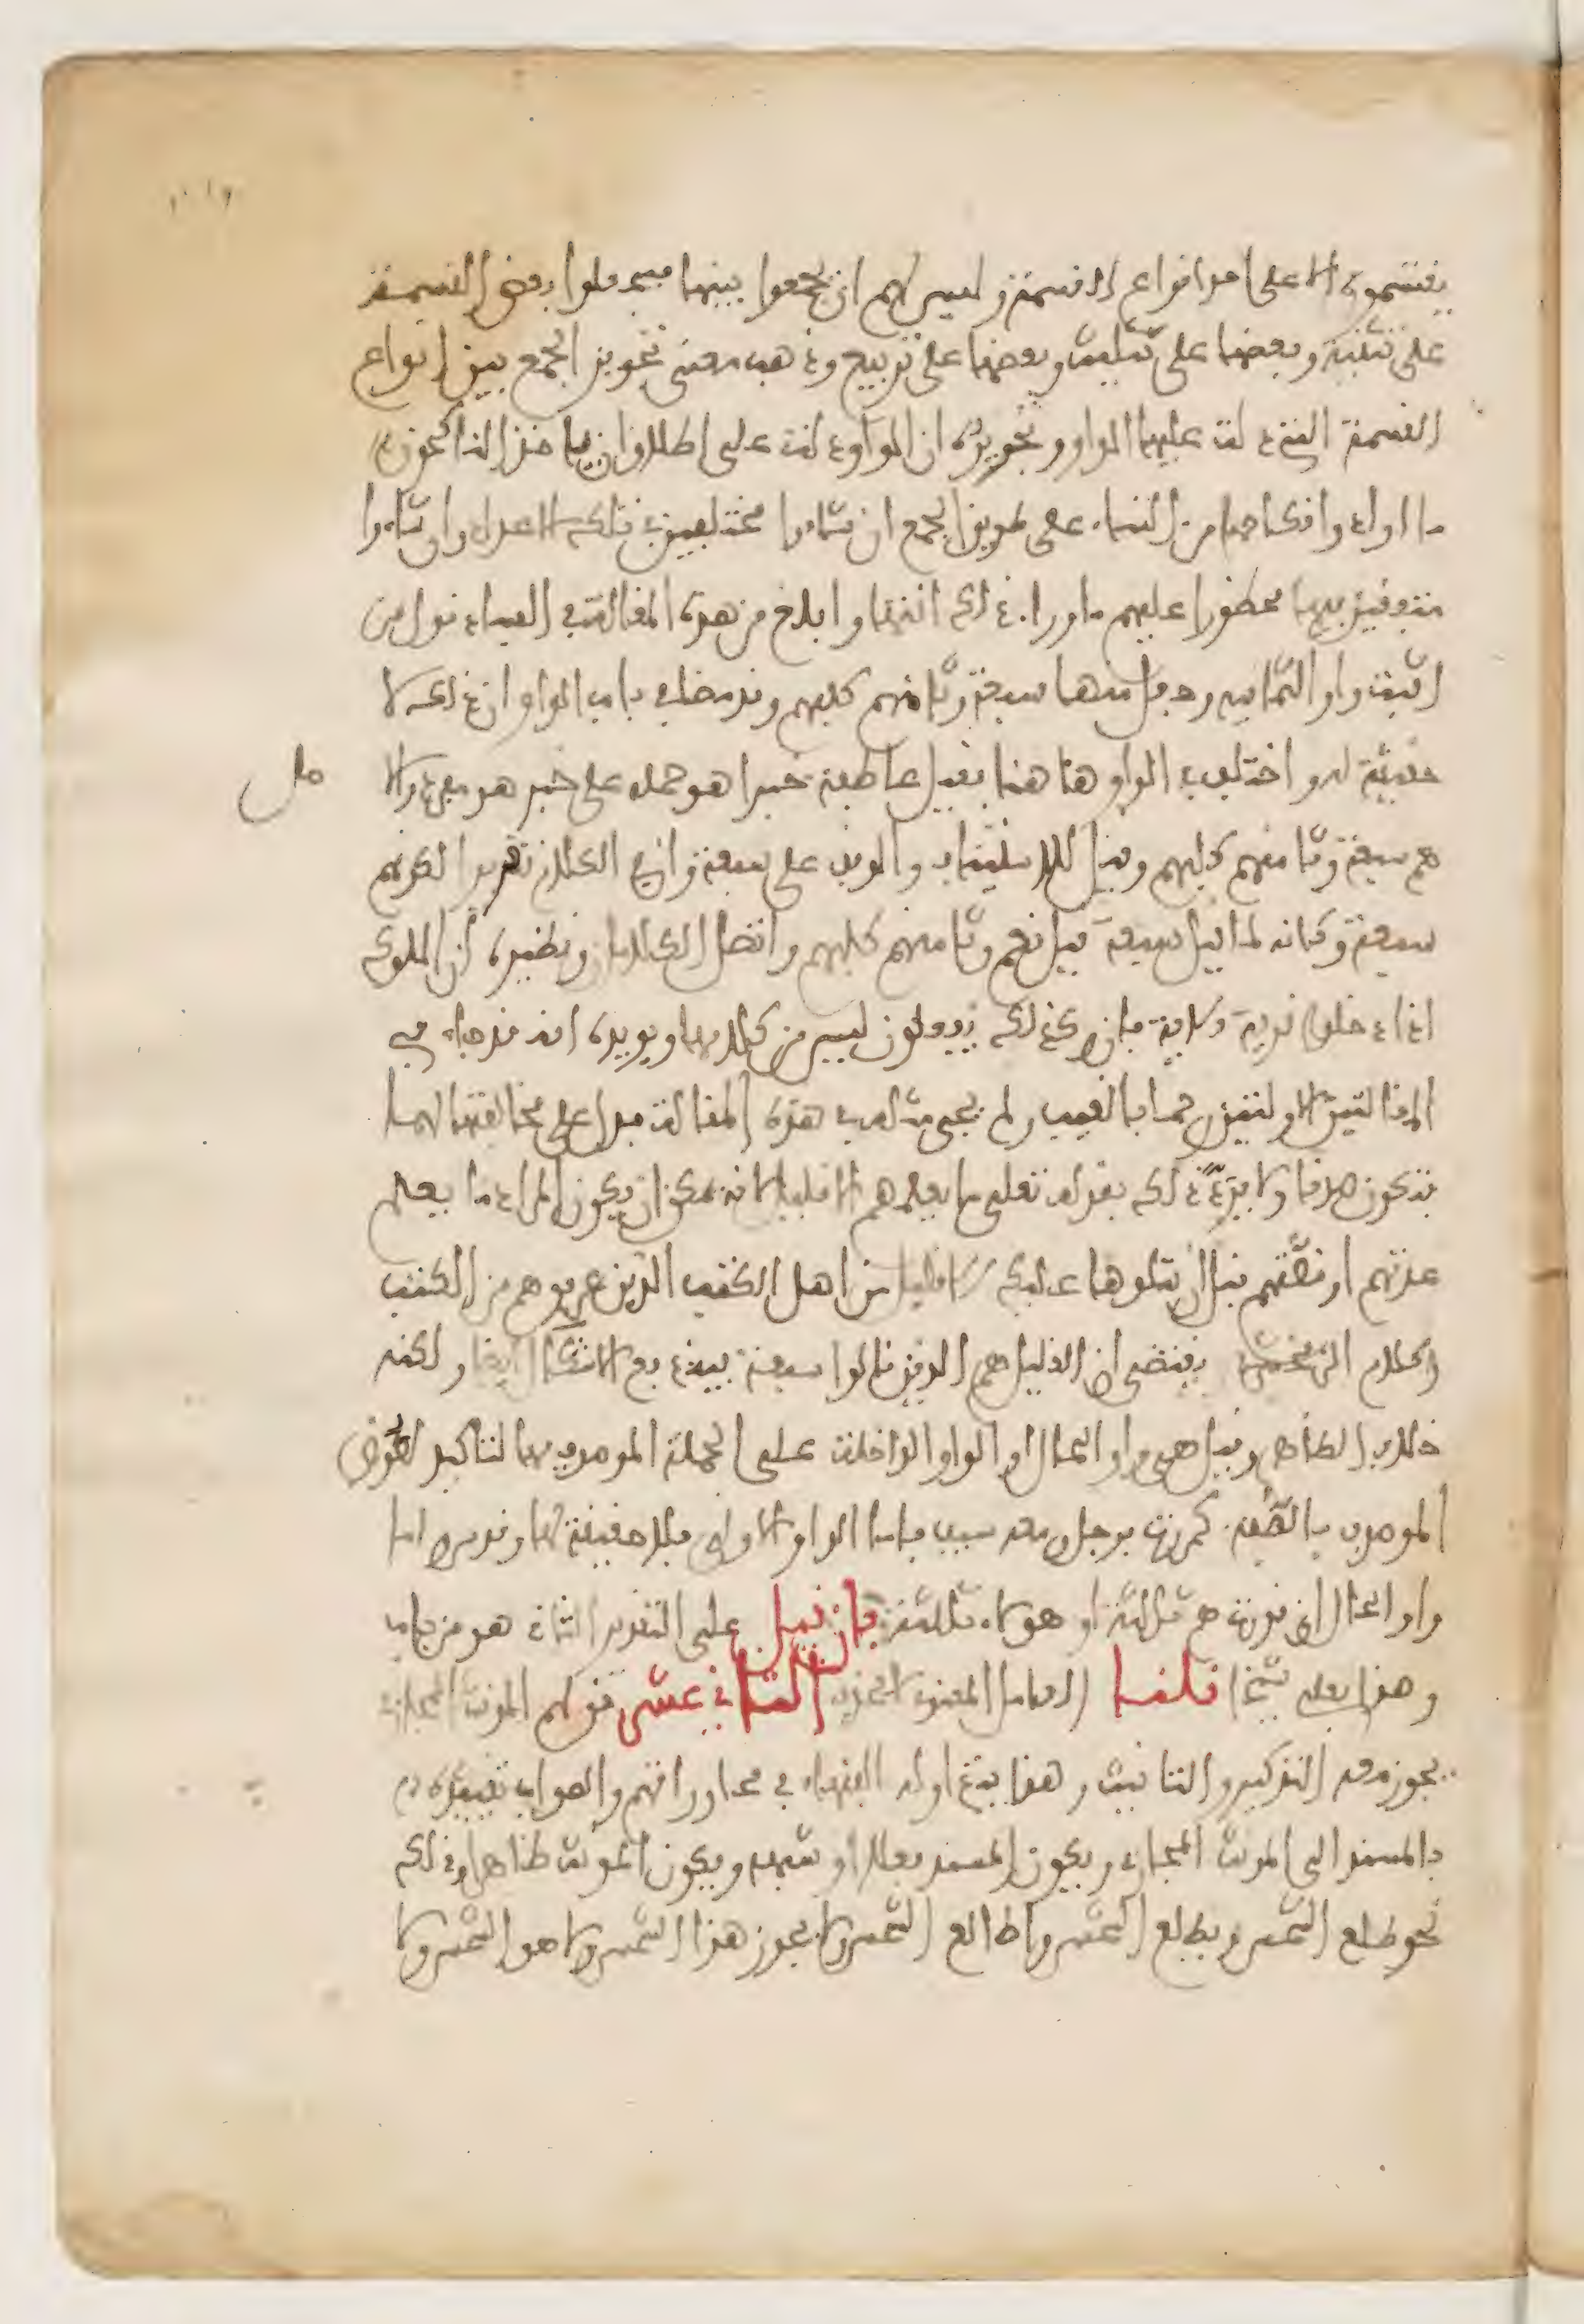 يقتسموه الا على احد انواع القسمة وليس لهم ان يجمعوا بينها فيجعلوا بعض القسمة
على تثنية وبعضها على تثليث وبعضها على تربيع وذهب معنى تجويز الجمع بين انواع
القسمة التي دلت عليها الواو وتحريره ان الواو دلت على اطلاق ان ياخذ الناكحون
ما ارادوا نكاحها من النساء على طريق الجمع ان شاءوا مختلفين في تلك الاعداد وان شاءوا
متفقين فيها محظورا عليهم ما وراء ذلك انتهى وابلغ من هذه المقالة في الفساد قول من
اثبت واو الثمانية وجعل منها سبعة وثامنهم كلبهم وقد مضى في باب الواو ان ذلك لا
حقيقة له واختلف في الواو هاهنا فقيل عاطفة خبرا هو جملة على خبر هو مفرد والا
هم سبعة وثامنهم كلبهم وقيل للاستئناف والوقف على سبعة وان في الكلام تقريرا لكونهم
سبعة وكانه لما قيل سبعة قيل نعم وثامنهم كلبهم واتصل الكلامان ونظيره ان الملوك
اذا دخلوا قرية الاية فان وكذلك يفعلون ليس من كلامها ويويده انه قد جاء في
المقالتين الاولتين رجما بالغيب ولم يجئ مثله في هذه المقالة فدل على مخالفتها لهما
فتكون صدقا ولا يرد ذلك بقوله تعلى ما يعلمهم الا قليل لانه يمكن ان يكون المراد ما يعلم
عدتهم او قصتهم قبل ان يتلوها عليك الا قليل من اهل الكتب الذين عرفوهم من الكتب
وكلام الزمخشري يقتضي ان القليل هم الذين قالوا سبعة فيندفع الاشكال ايضا ولكنه
خلاف الظاهر وقيل هي واو الحال او الواو الداخلة على الجملة الموصوف بها لتاكيد لصوق
الموصوف بالصفة كمررت برجل ومعه سيف فاما الواو الاولى فلا حقيقة لها وقد مر واما
واو الحال ان قدرت هم ثلاثة او هولاء ثلاثة فان قيل على التقدير الثاني هو من باب
وهذا بعلي شيخا قلنا العامل المعنوي لا يحذف الثاني عشر قولهم المونث المجازي
يجوز معه التذكير والتانيث وهذا يتداوله الفقهاء في محاوراتهم والصواب تقييده
بالمسند الى المونث المجازي ويكون المسند فعلا او شبهه ويكون المونث ظاهرا وذلك
نحو طلع الشمس ويطلع الشمس واطالع الشمس ولا يجوز هذا الشمس ولا هو الشمس ولا